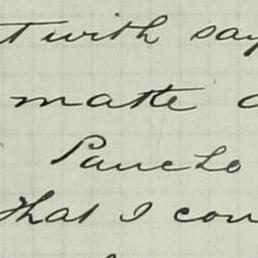 t with say
matte
Pancho
that I con